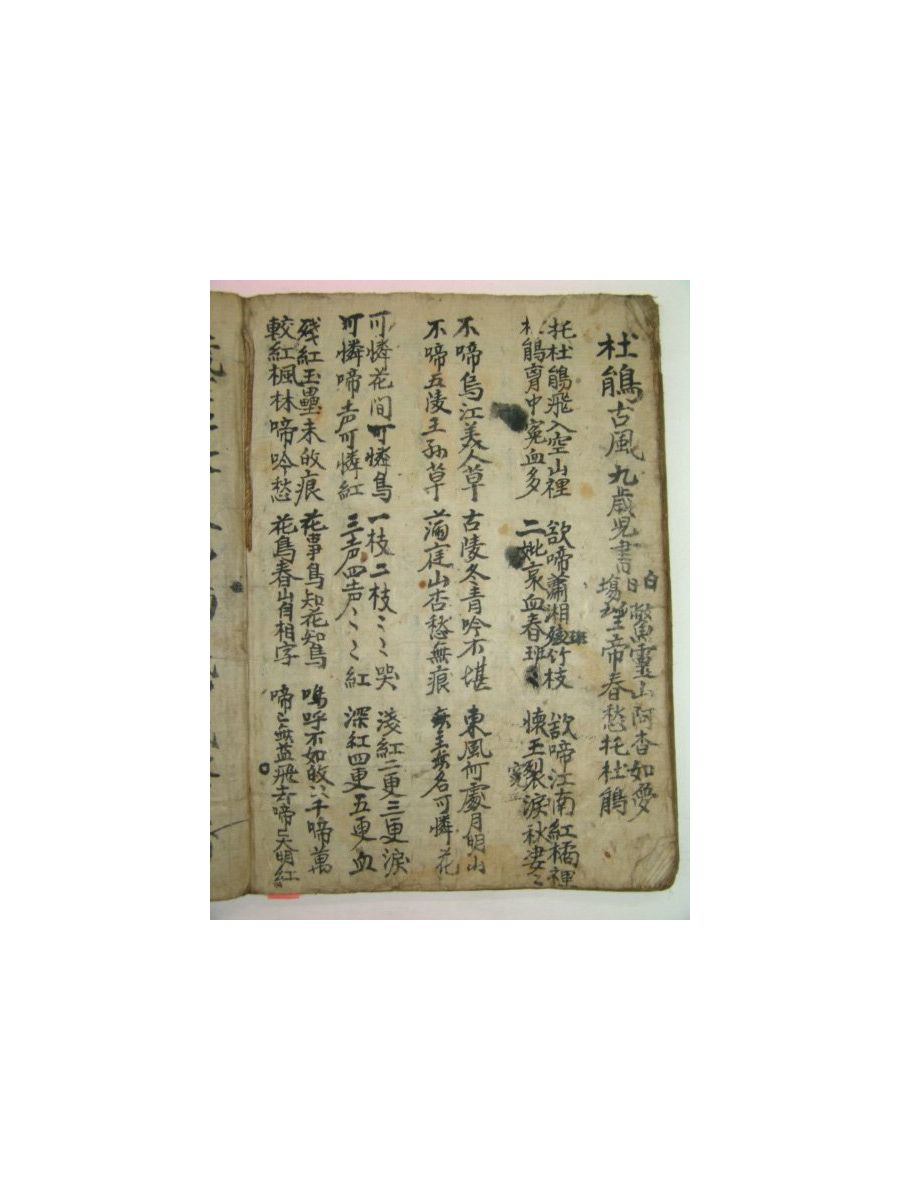 杜鵑古風 九歲児書
白日鱉靈山阿杳如夢
塲 望帝春愁托杜鵑
托杜鵑飛入空山裡 欲啼瀟湘 竹枝 欲啼江南紅橘裡
杜鵑胷中寃血多 二妣哀血春班〻 懐王 淚秋凄〻
不啼烏江美人草 古陵冬青吟不堪 東風何處月明山
不啼五陵王孫草 滿庭山杏愁無痕 無主無名可憐花
可憐花間可憐鳥 一枝二枝〻〻哭 淺紅二更三更淚
可憐啼声可憐紅 三声四声〻〻紅 深紅四更五更血
殘紅玉壘未 痕 花事鳥知花知鳥 嗚呼不如 千啼萬
較紅楓林啼吟愁 花鳥春山自相字 啼〻無益飛去啼〻天明紅